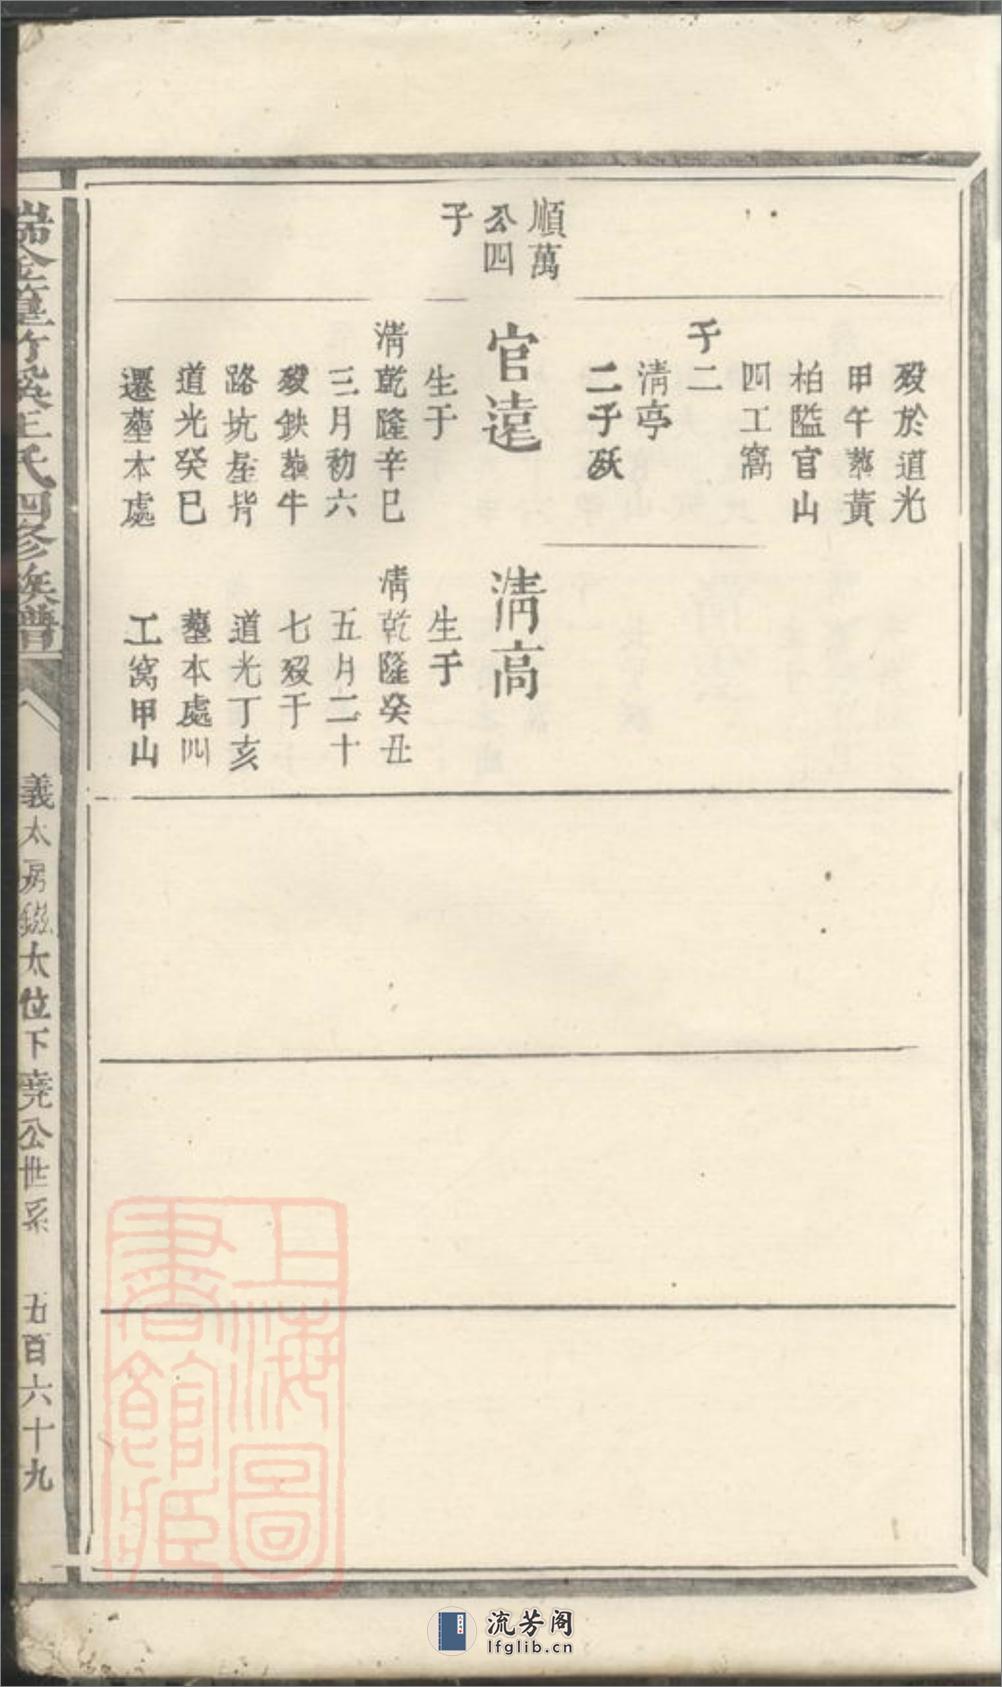 順萬
公四
子
歿於道光
甲午葬黃
柏隘官山
四工窩
子二
清亭
二子殀
官遠
生于
清乾隆辛巳
三月初六
歿鉄葬牛
路坑屋背
道光癸巳
遷塟本處
清高
生于
清乾隆癸丑
五月二十
七歿于
道光丁亥
塟本處四
工窩甲山
瑞金篁竹溪王氏四修族譜
義太房 太位下堯公世系
五百六十九
上海圖
書館藏
流芳阁
lfglib.cn